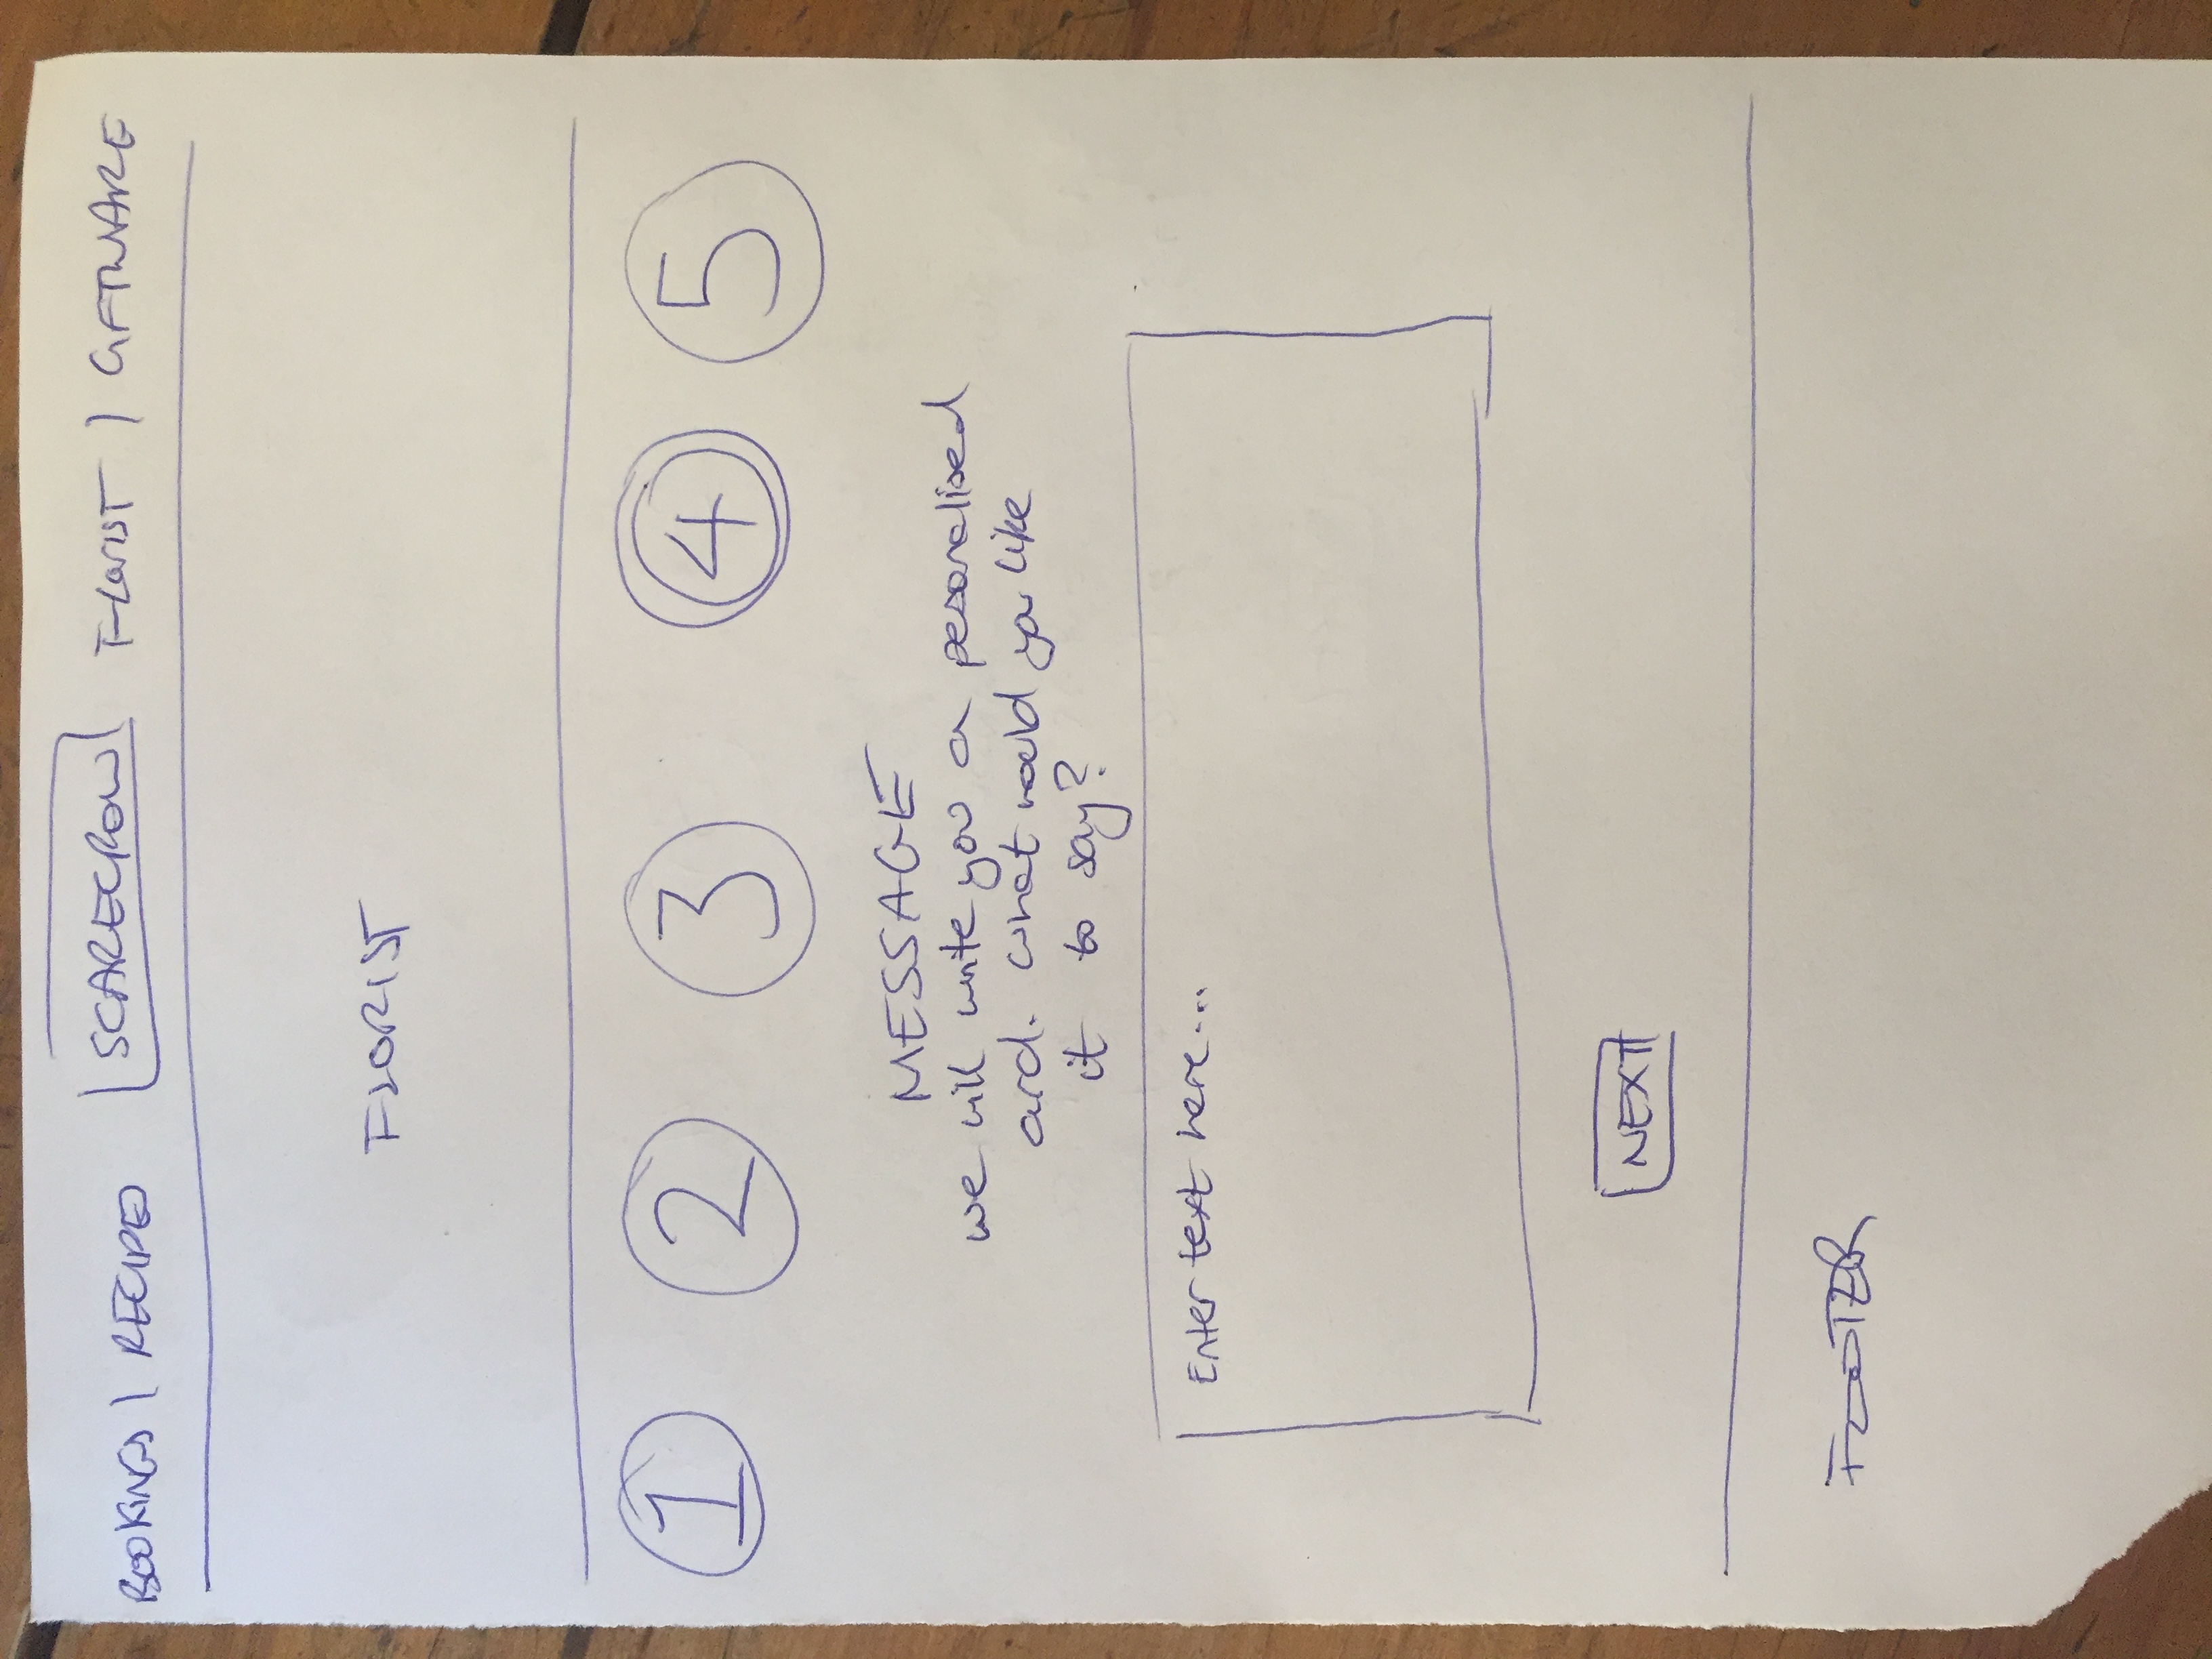 BOOKINGS | RECIPES SCARECROW FLORIST | GIFTWARE
FLORIST
1 2 3 4 5
MESSAGE
we will write you a pesonalised
card. What would you like
it to say?
Enter text here...
NEXT
FOOTER